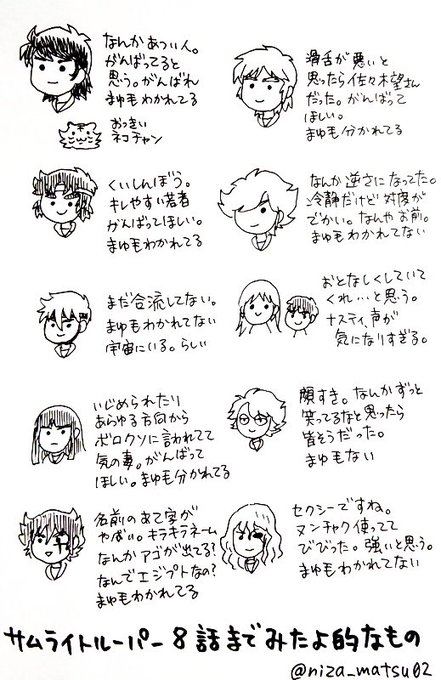 なんかあつい人。
がんばってると
思う。がんばれ
まゆもわかれてる
おっきい
ネコチャン
滑舌が悪いと
思ったら佐々木望さん
だった。がんばって
ほしい。
まゆも分かれてる
くいしんぼう。
キレやすい若者
がんばってほしい。
まゆもわかれてる
なんか逆さになってた。
冷静だけど対度が
でかい。なんやお前。
まゆもわかれてない
まだ合流してない。
まゆもわかれてない
宇宙にいる。らしい
おとなしくしていて
くれ…と思う。
ナスティ、声が
気になりすぎる。
いじめられたり
あらゆる方向から
ボロクソに言われてて
気の毒。がんばって
ほしい。まゆも分かれてる
顔すき。なんかずっと
笑ってるなと思ったら
皆そうだった。
まゆもない
名前のあて字が
やばい。キラキラネーム
なんかアゴが出てる?
なんでエジプトなの?
まゆもわかれてる
セクシーですね。
ヌンチャク使ってて
びびった。強いと思う。
まゆもわかれてない
サムライトルーパー8話までみたよ的なもの
@niza_matsu02